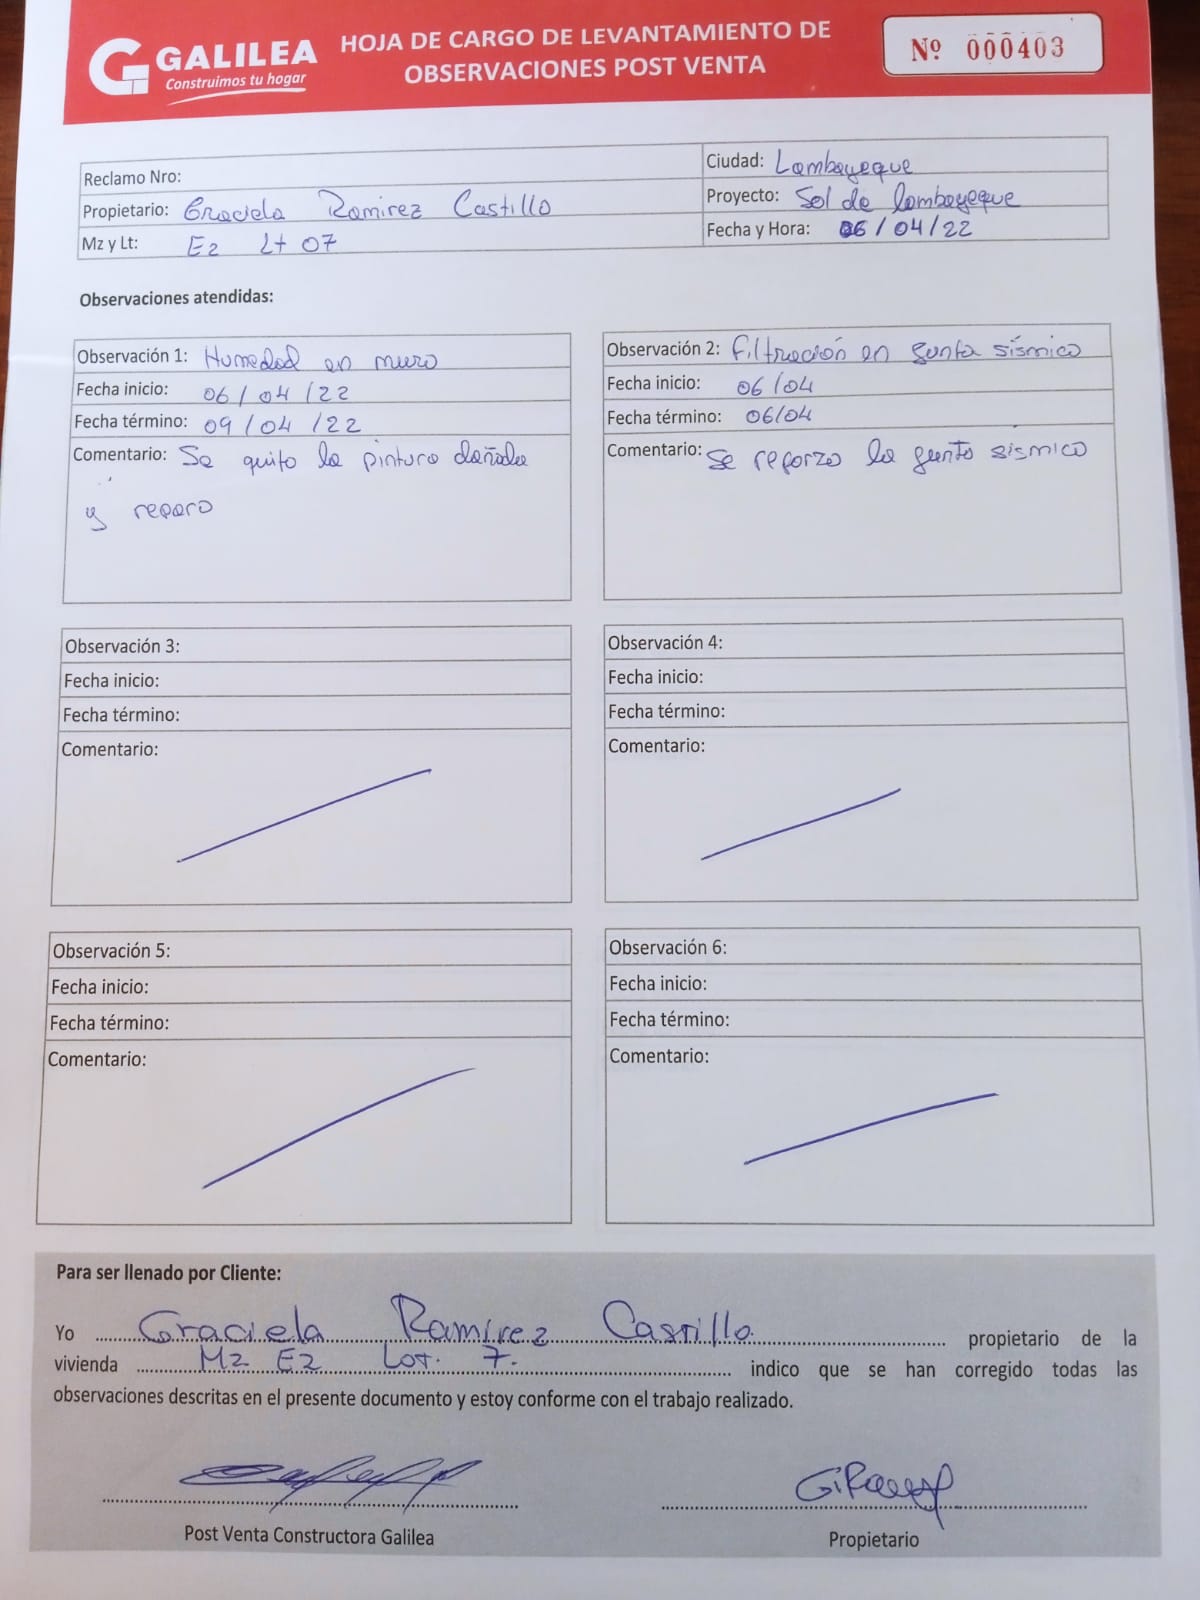 GALILEA
Construimos tu hogar
HOJA DE CARGO DE LEVANTAMIENTO DE
OBSERVACIONES POST VENTA
Nº 000403
Reclamo Nro:
Ciudad: Lambayeque
Propietario: Graciela Ramirez Castillo
Proyecto: Sol de lambayeque
Mz y Lt: E2 Lt 07
Fecha y Hora: 06/04/22
Observaciones atendidas:
Observación 1: Humedad en muro
Fecha inicio: 06/04/22
Fecha término: 09/04/22
Comentario: Se quito la pintura dañada
y reparo
Observación 2: Filtración en gunta sísmico
Fecha inicio: 06/04
Fecha término: 06/04
Comentario: se reforzo la gunta sísmico
Observación 3:
Fecha inicio:
Fecha término:
Comentario:
Observación 4:
Fecha inicio:
Fecha término:
Comentario:
Observación 5:
Fecha inicio:
Fecha término:
Comentario:
Observación 6:
Fecha inicio:
Fecha término:
Comentario:
Para ser llenado por Cliente:
Yo Graciela Ramirez Castillo propietario de la
vivienda Mz E2 Lot. 7. indico que se han corregido todas las
observaciones descritas en el presente documento y estoy conforme con el trabajo realizado.
Post Venta Constructora Galilea
Propietario